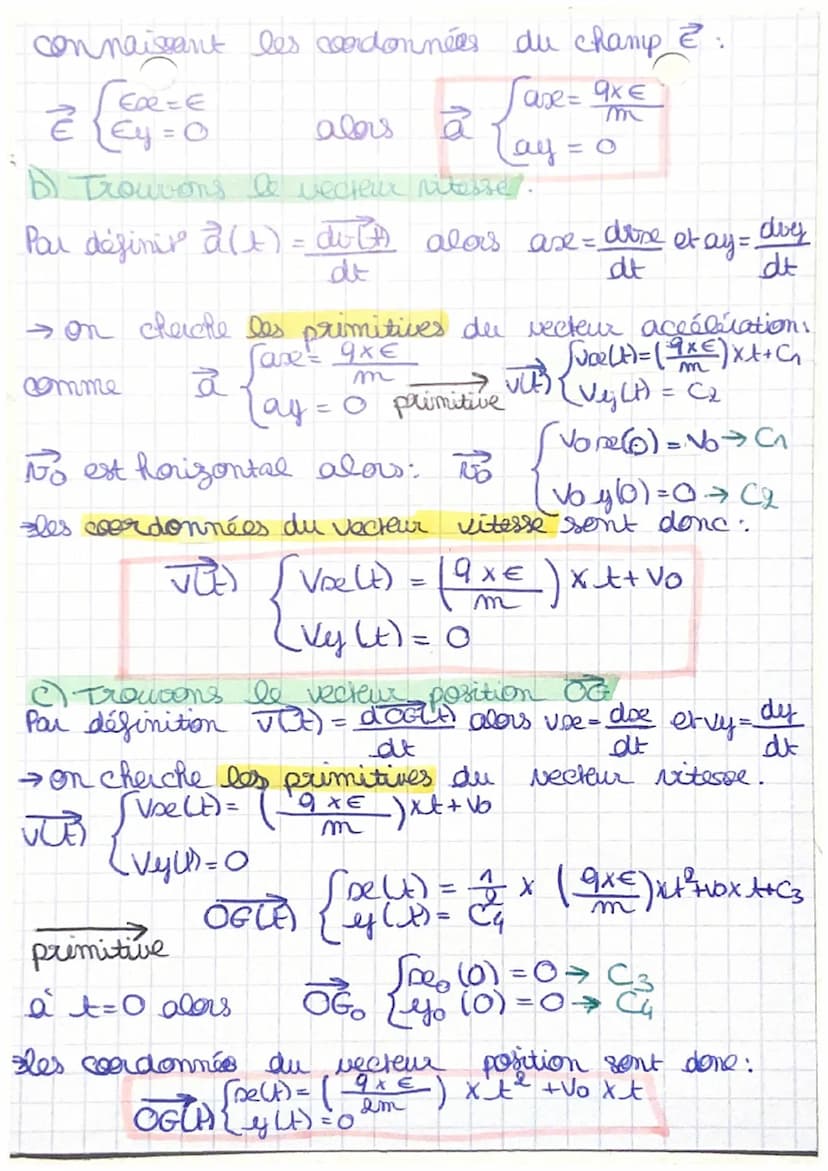 connaissant les coordonnées du champ E⃗ :
E⃗ { Ex = E alors a⃗ { ax = q×E/m
Ey = 0 ay = 0
b) Trouvons le vecteur vitesse.
Par définit° a⃗(t) = dv⃗(t)/dt alors ax = dvx/dt et ay = dvy/dt
→ on cherche les primitives du vecteur accélération.
comme a⃗ { ax = q×E/m primitive→ v⃗(t) { vx(t) = (q×E/m) × t + C1
ay = 0 vy(t) = C2
v⃗0 est horizontal alors : v⃗0 { v0x(0) = v0 → C1
v0y(0) = 0 → C2
⇒ les coordonnées du vecteur vitesse sont donc :
v⃗(t) { vx(t) = (q×E/m) × t + v0
vy(t) = 0
c) Trouvons le vecteur position OG⃗
Par définition v⃗(t) = dOG⃗(t)/dt alors vx = dx/dt et vy = dy/dt
→ on cherche les primitives du vecteur vitesse.
v⃗(t) { vx(t) = (q×E/m) × t + v0
vy(t) = 0
primitive→ OG⃗(t) { x(t) = 1/2 × (q×E/m) × t² + v0 × t + C3
y(t) = C4
à t=0 alors OG⃗0 { x0(0) = 0 → C3
y0(0) = 0 → C4
⇒ les coordonnées du vecteur position sont donc :
OG⃗(t) { x(t) = (q×E/2m) × t² + v0 × t
y(t) = 0